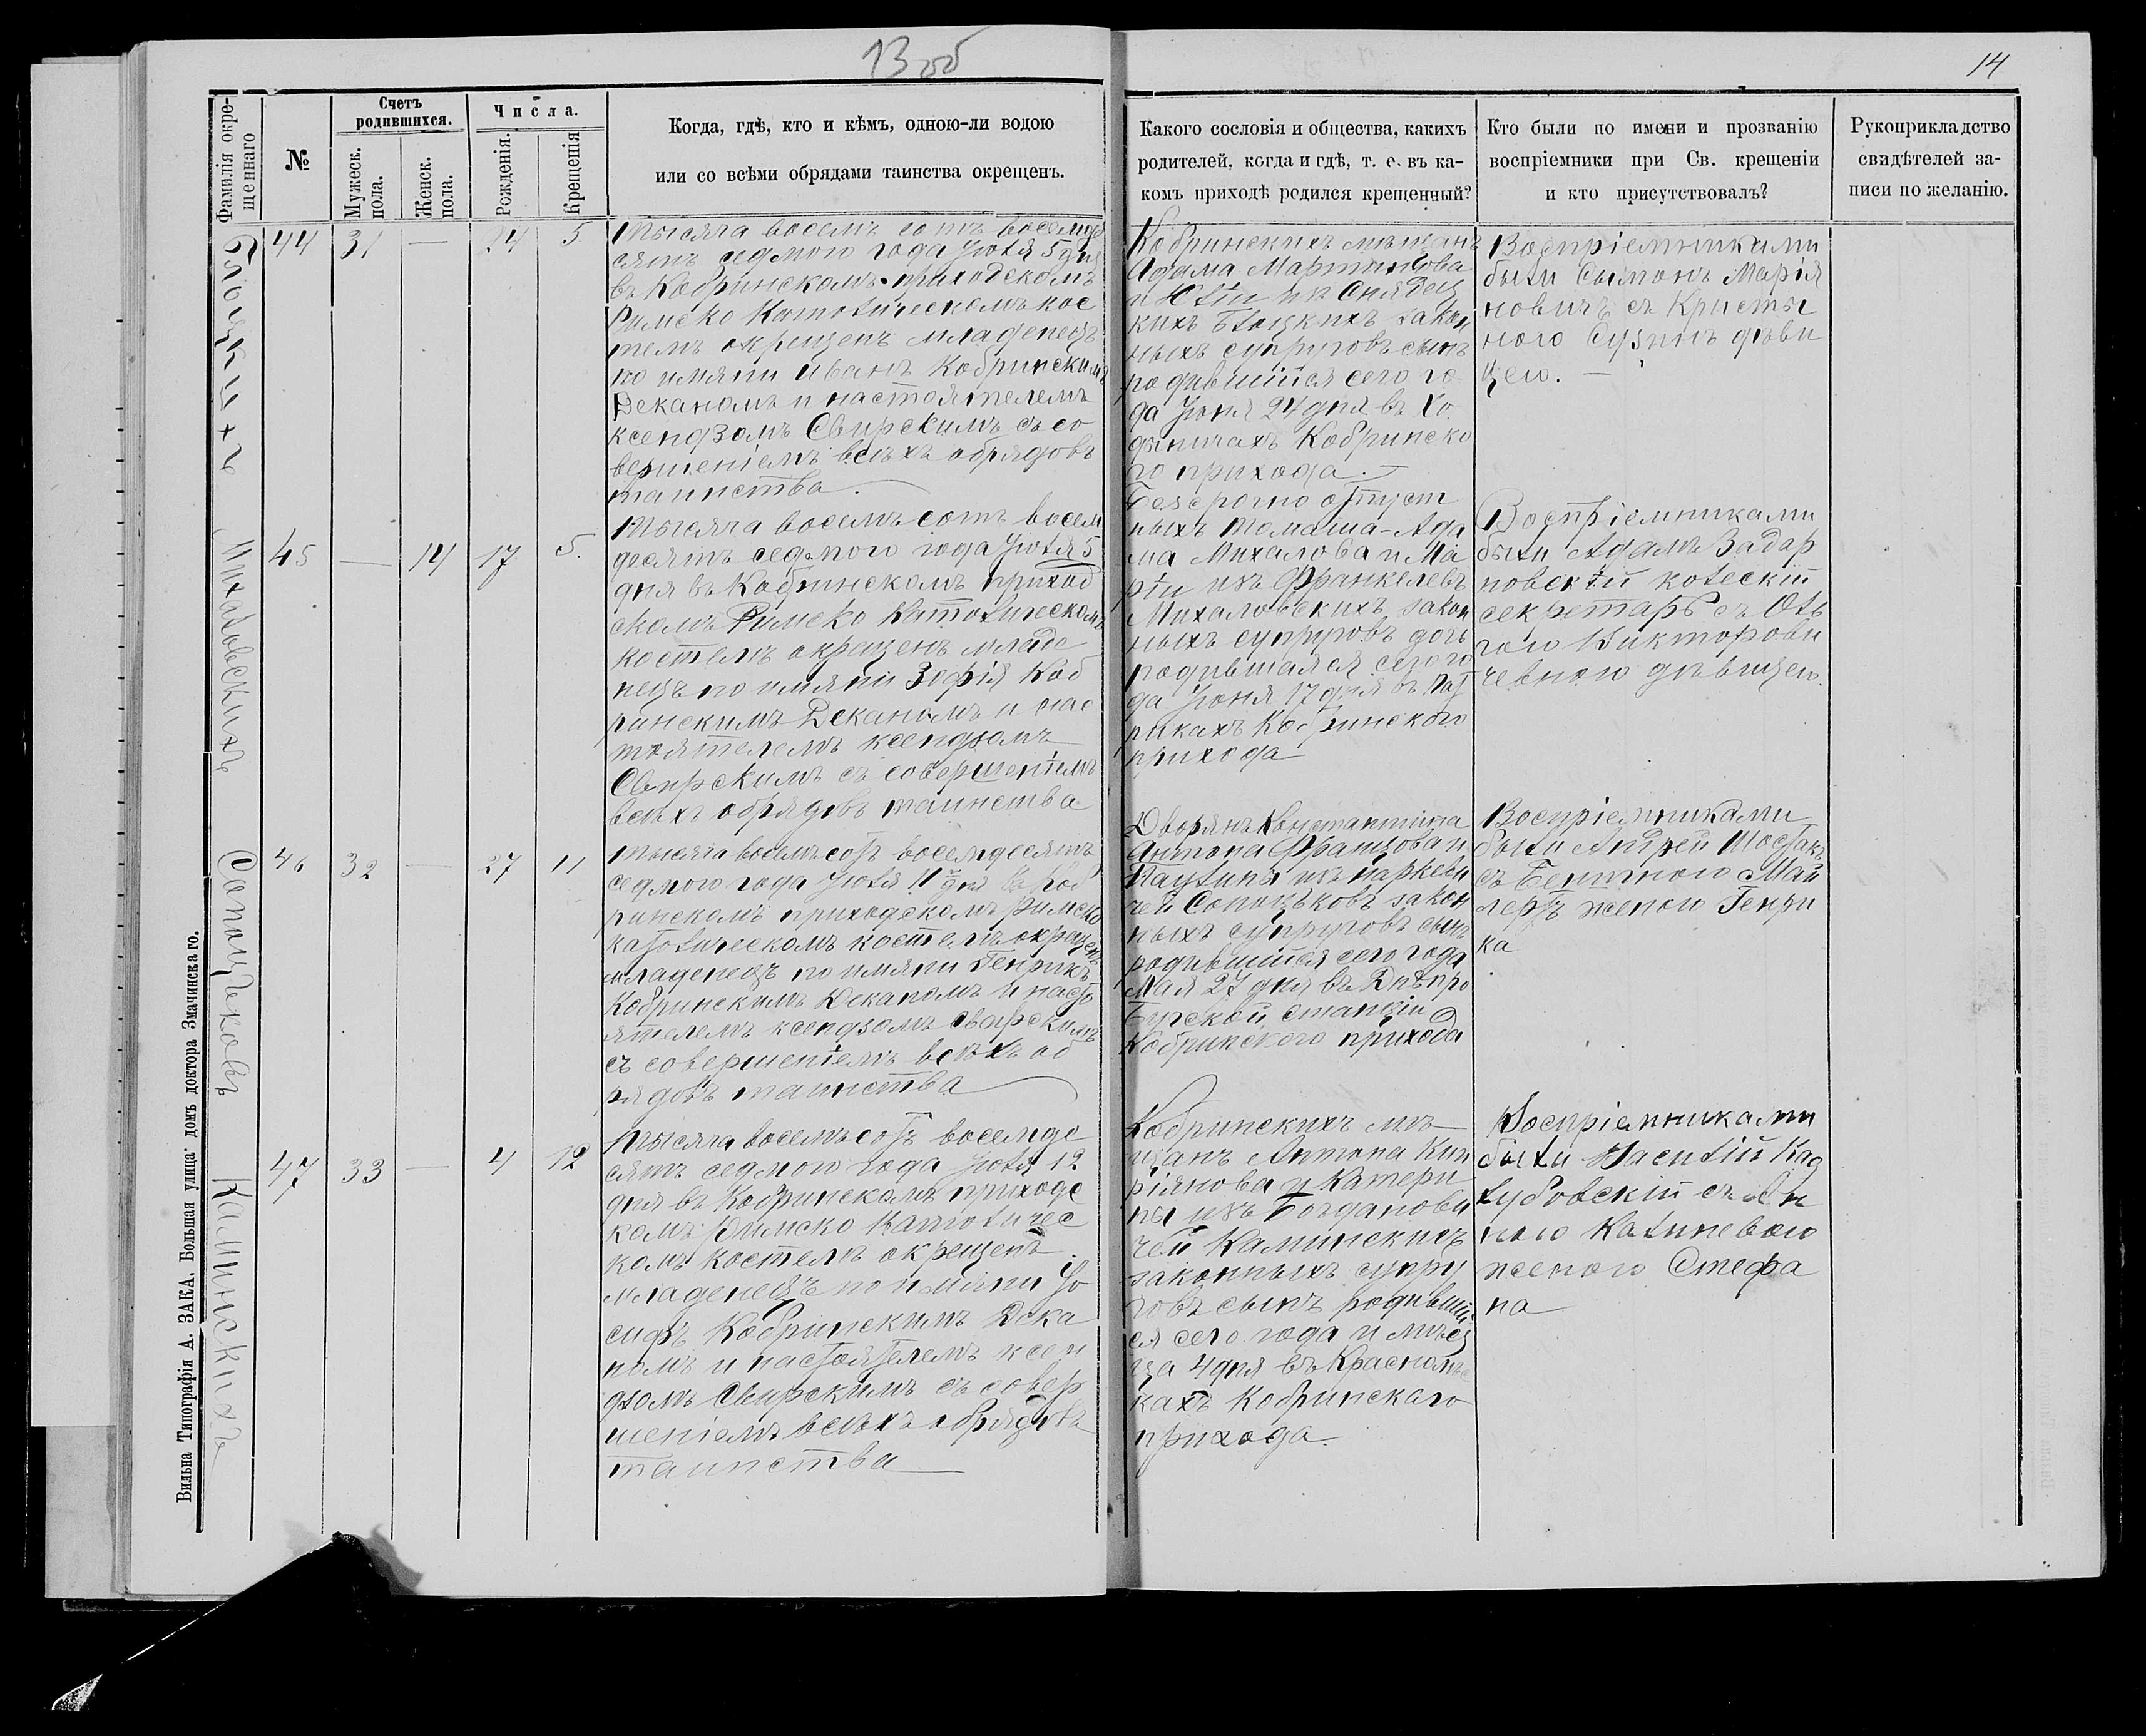 13 об
14
Фамилія окре-
щеннаго
№
Счетъ
родившихся.
Мужеск.
пола.
Женск.
пола.
Числа.
Рожденія.
Крещенія
Когда, гдѣ, кто и кѣмъ, одною-ли водою
или со всѣми обрядами таинства окрещенъ.
Какого сословія и общества, какихъ
родителей, когда и гдѣ, т. е. въ ка-
комъ приходѣ родился крещенный?
Кто были по имени и прозванію
воспріемники при Св. крещеніи
и кто присутствовалъ?
Рукоприкладство
свидѣтелей за-
писи по желанію.
44 31 — 24 5
Тысяча восемъ сотъ восемде
сятъ седмого года Іюля 5 дня
въ Кобринскомъ приходскомъ
Римско Католическомъ кос
телѣ окрещенъ младенецъ
по имяни Иванъ Кобринскимъ
Деканомъ и настоятелемъ
ксендзомъ Свирскимъ съ со
вершеніемъ всѣхъ обрядовъ
таинства.
Кобринскихъ мѣщанъ
Адама Мартинова
и Юліи изъ Снядец
кихъ законъ
ныхъ супруговъ сынъ
родившійся сего го
да Іюня 24 дня въ Хо
дыничахъ Кобринско
го прихода. —
Воспріемниками
были Сымонъ Марія
новичъ съ Кристы
ною Сузинъ дѣви
цею. —
Михаловскихъ
45 — 14 17 5.
Тысяча восемъ сотъ восем
десятъ седмого года Іюля 5
дня въ Кобринскомъ приход
скомъ Римско Католическомъ
костелѣ окрещенъ младе
нецъ по имяни Зофія Коб
ринскимъ Деканомъ и нас
тоятелемъ ксендзомъ
Свирскимъ съ совершеніемъ
всѣхъ обрядовъ таинства
Безсрочно отпуст
ныхъ Томаша-Ада
ма Михалова и Ма
ріи изъ Франкелевъ
Михаловскихъ закон
ныхъ супруговъ дочь
родившаяся сего го
да Іюня 17 дня въ Пат
рикахъ Кобринского
прихода
Воспріемниками
были Адамъ Задар
новскій колескій
секретарь съ Оль
гою Викторови
чевною дѣвицею.
Сопоцьковъ
46 32 — 27 11
Тысяча восемъ сотъ восемдесятъ
седмого года Іюля 11 дня въ Коб
ринскомъ приходскомъ Римско
католическомъ костелѣ окрещенъ
младенецъ по имяни Генрикъ
Кобринскимъ Деканомъ и насто
ятелемъ ксендзомъ Свирскимъ
съ совершеніемъ всѣхъ об
рядовъ таинства
Дворянъ Константина
Антона Францова и
Паулины изъ Маркеви
чей Сопоцьковъ закон
ныхъ супруговъ сынъ
родившійся сего года
Мая 27 дня въ Днѣпро
Бугской станціи
Кобринского прихода
Воспріемниками
были Андрей Шостакъ
съ Бенигною Май
леръ женою Генри
ка
Каминскихъ
47 33 — 4 12
Тысяча восемъ сотъ восемде
сятъ седмого года Іюля 12
дня въ Кобринскомъ приходс
комъ Римско Католичес
комъ костелѣ окрещенъ
младенецъ по имяни Іо
сифъ Кобринскимъ Дека
номъ и настоятелемъ ксен
дзомъ Свирскимъ съ совер
шеніемъ всѣхъ обрядовъ
таинства
Кобринскихъ мѣ
щанъ Антона Кип
ріянова и Катери
ны изъ Богданови
чей Каминскихъ
законныхъ супру
говъ сынъ родившій
ся сего года и мѣся
ца 4 дня въ
кахъ Кобринскаго
прихода.
Воспріемниками
были Василій Кад
лубовскій съ
ною Калиневою
женою Стефа
на
Вильна Типографія А. ЗАКА. Большая улица: домъ доктора Змачинскаго.